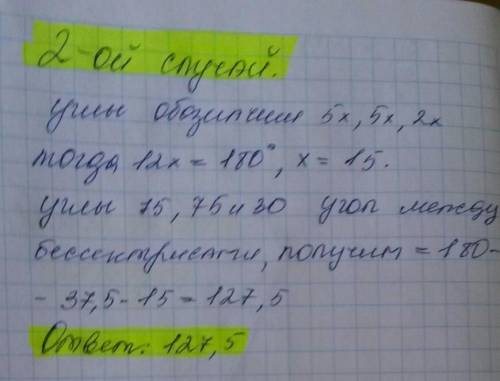 2-ой случай.
углы обозначим 5x, 5x, 2x
тогда 12x = 180°, x = 15.
углы 75, 75 и 30 угол между
бессектрисами, получим = 180-
- 37,5 - 15 = 127,5
Ответ: 127,5